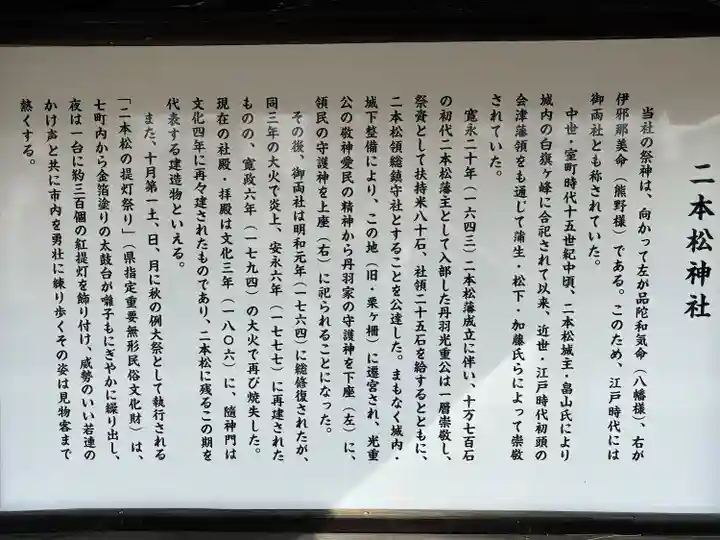 二本松神社
当社の祭神は、向かって左が品陀和気命(八幡様)、右が
伊邪那美命(熊野様)である。このため、江戸時代には
御両社とも称されていた。
中世・室町時代十五世紀中頃、二本松城主・畠山氏により
城内の白旗ヶ峰に合祀されて以来、近世・江戸時代初頭の
会津藩領をも通じて蒲生・松下・加藤氏らによって崇敬
されていた。
寛永二十年(一六四三)二本松藩成立に伴い、十万七百石
の初代二本松藩主として入部した丹羽光重公は一層崇敬し、
祭資として扶持米八十石、社領二十五石を給するとともに、
二本松領総鎮守社とすることを公達した。まもなく城内・
城下整備により、この地(旧・栗ヶ柵)に遷宮され、光重
公の敬神愛民の精神から丹羽家の守護神を下座(左)に、
領民の守護神を上座(右)に祀られることになった。
その後、御両社は明和元年(一七六四)に総修復されたが、
同三年の大火で炎上、安永六年(一七七七)に再建された
ものの、寛政六年(一七九四)の大火で再び焼失した。
現在の社殿・拝殿は文化三年(一八〇六)に、随神門は
文化四年に再々建されたものであり、二本松に残るこの期を
代表する建造物といえる。
また、十月第一土、日、月に秋の例大祭として執行される
「二本松の提灯祭り」(県指定重要無形民俗文化財)は、
七町内から金箔塗りの太鼓台が囃子もにぎやかに繰り出し、
夜は一台に約三百個の紅提灯を飾り付け、威勢のいい若連の
かけ声と共に市内を勇壮に練り歩くその姿は見物客まで
熱くする。